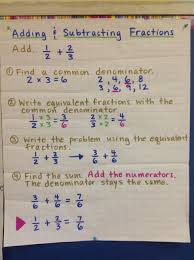 Adding & Subtracting Fractions
Add. 1/2 + 2/3
① Find a common denominator.
2 × 3 = 6 2, 4, 6, 8
3, 6, 9, 12
② Write equivalent fractions with the
common denominator.
1 × 3 = 3 / 2 × 3 = 6 2 × 2 = 4 / 3 × 2 = 6
③ Write the problem using the equivalent
fractions.
1/2 + 2/3 → 3/6 + 4/6
④ Find the sum. Add the numerators.
The denominator stays the same.
3/6 + 4/6 = 7/6
1/2 + 2/3 = 7/6